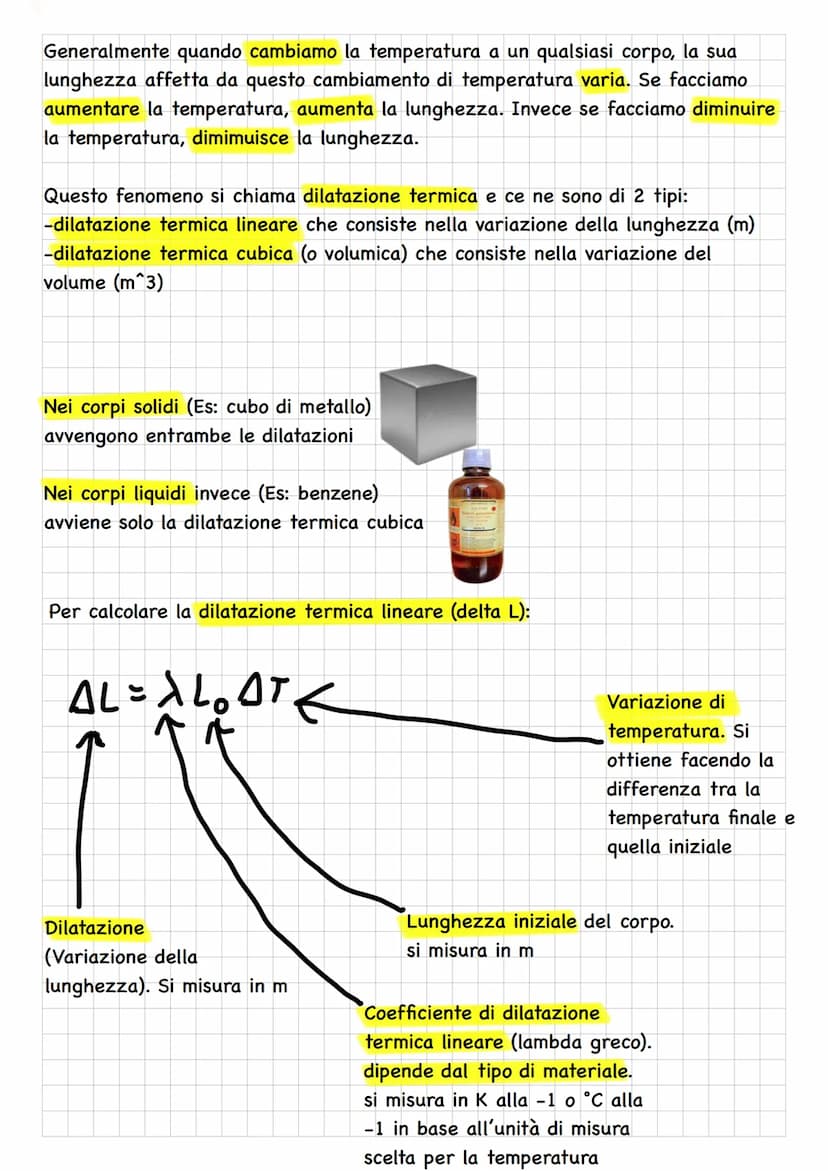 Generalmente quando cambiamo la temperatura a un qualsiasi corpo, la sua
lunghezza affetta da questo cambiamento di temperatura varia. Se facciamo
aumentare la temperatura, aumenta la lunghezza. Invece se facciamo diminuire
la temperatura, dimimuisce la lunghezza.
Questo fenomeno si chiama dilatazione termica e ce ne sono di 2 tipi:
-dilatazione termica lineare che consiste nella variazione della lunghezza (m)
-dilatazione termica cubica (o volumica) che consiste nella variazione del
volume (m^3)
Nei corpi solidi (Es: cubo di metallo)
avvengono entrambe le dilatazioni
Nei corpi liquidi invece (Es: benzene)
avviene solo la dilatazione termica cubica
Per calcolare la dilatazione termica lineare (delta L):
ΔL = λ L₀ ΔT
Variazione di
temperatura. Si
ottiene facendo la
differenza tra la
temperatura finale e
quella iniziale
Lunghezza iniziale del corpo.
si misura in m
Dilatazione
(Variazione della
lunghezza). Si misura in m
Coefficiente di dilatazione
termica lineare (lambda greco).
dipende dal tipo di materiale.
si misura in K alla -1 o °C alla
-1 in base all'unità di misura
scelta per la temperatura